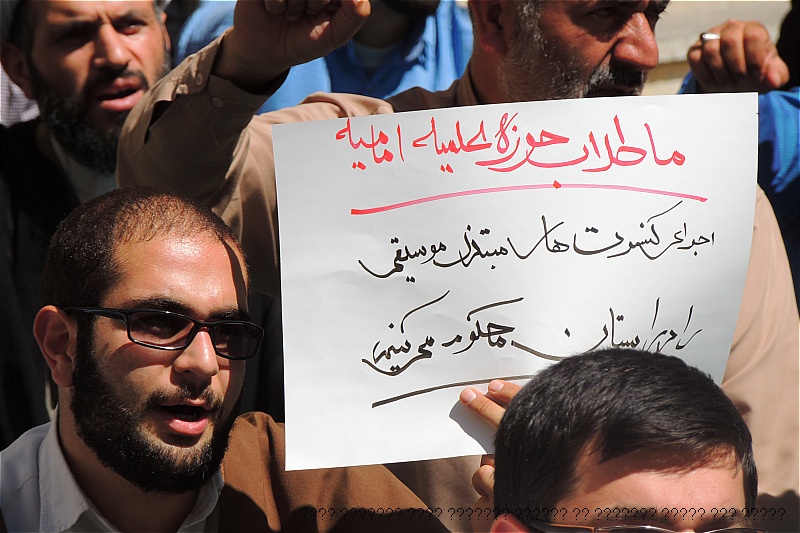 ما طلاب حوزه علمیه امامیه
اجرای کنسرت های مبتذل موسیقی
را در استان محکوم می کنیم
???? ??????? ???? ???????? ?????? ?? ??????? ????? ??? ?????